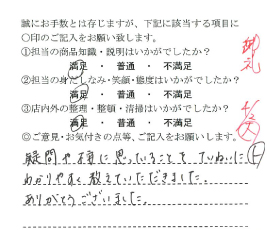 誠にお手数とは存じますが、下記に該当する項目に
〇印のご記入をお願い致します。
①担当の商品知識・説明はいかがでしたか？
満足 ・ 普通 ・ 不満足
②担当の身だしなみ・笑顔・態度はいかがでしたか？
満足 ・ 普通 ・ 不満足
③店内外の整理・整頓・清掃はいかがでしたか？
満足 ・ 普通 ・ 不満足
◎ご意見・お気付きの点等、ご記入をお願いします。
疑問や不安に思っていることも、ていねいに
わかりやすく教えていただきました。
ありがとうございました。
御礼